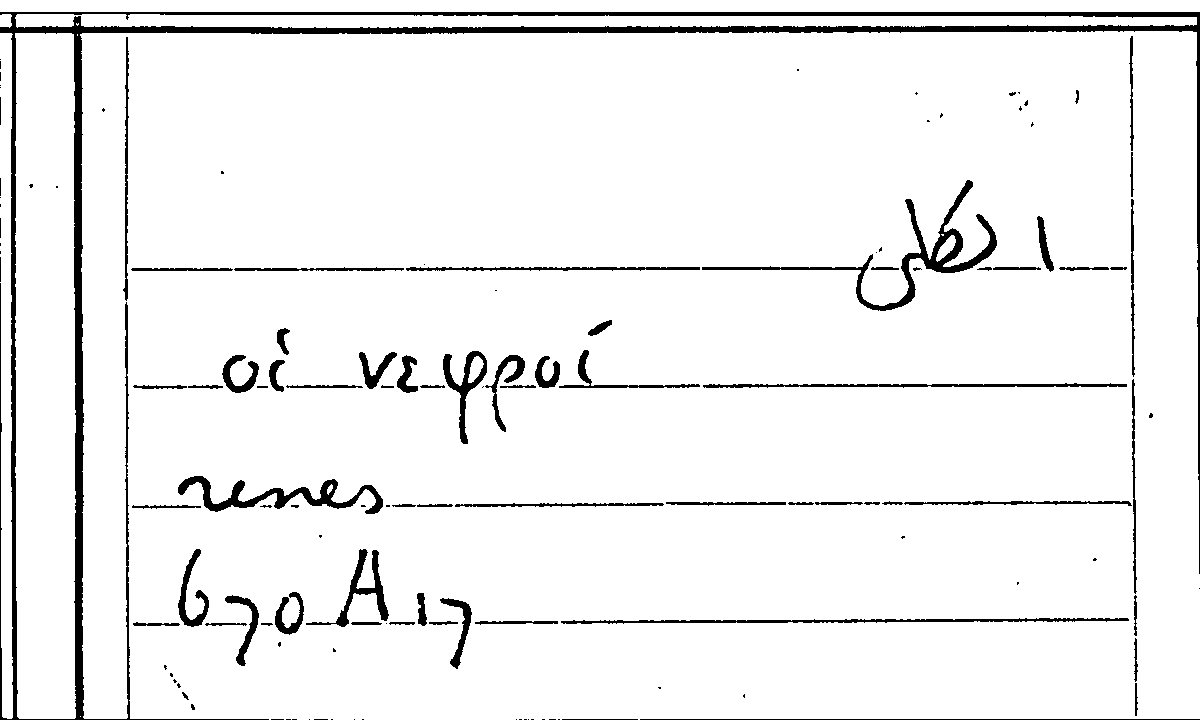 الكلى
οἱ νεφροί
renes
670 A 17